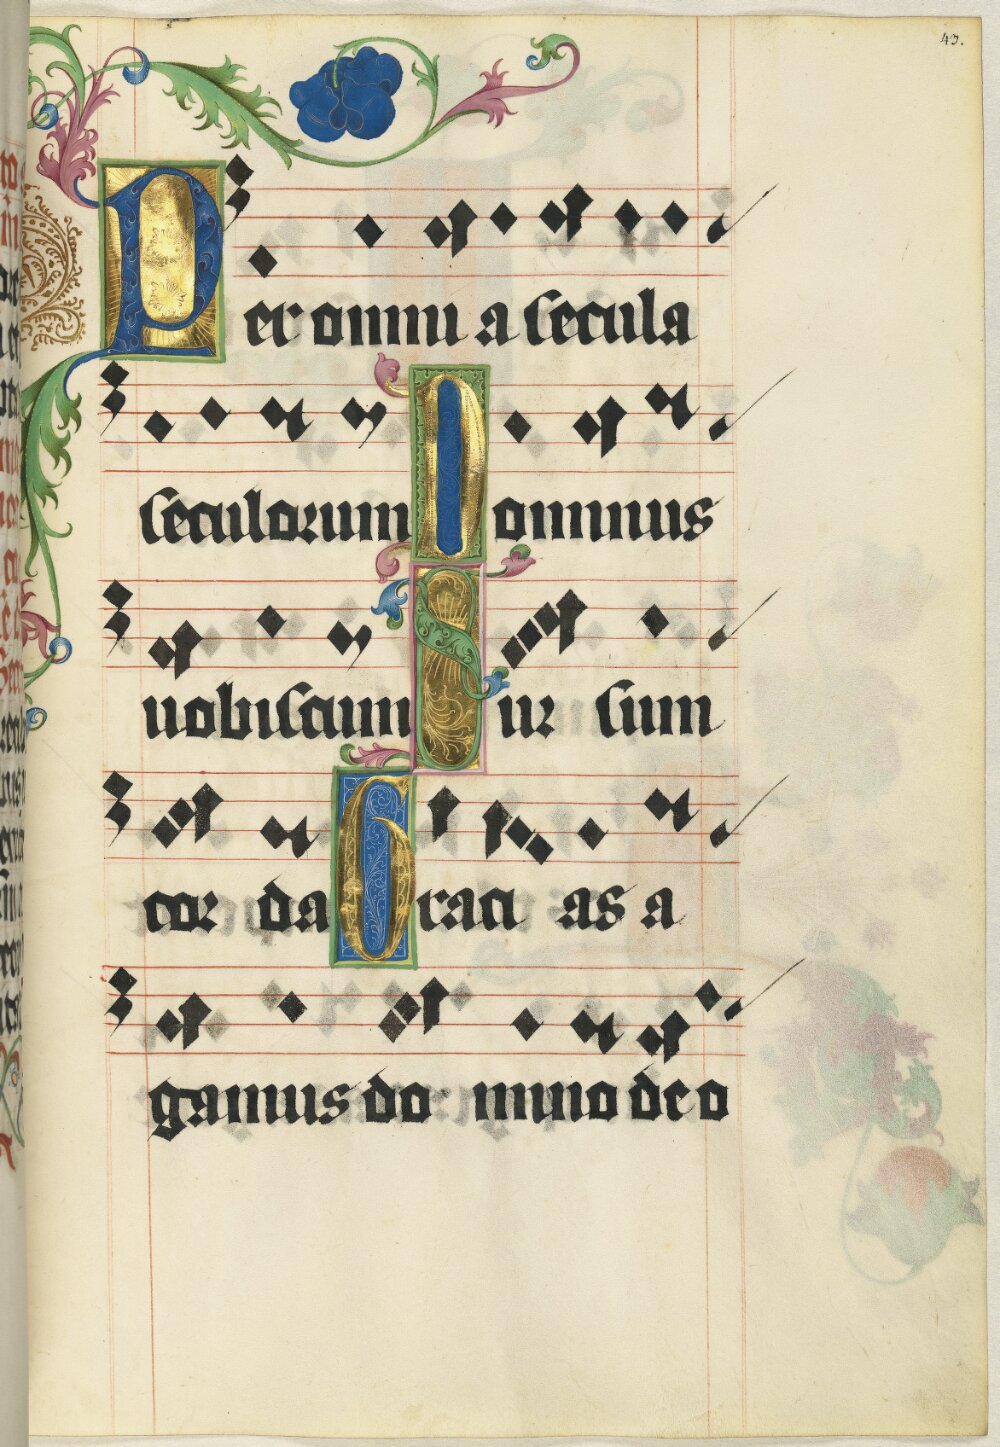 43.
Per omni a secula
seculorum Dominus
uobiscum Sur sum
cor da Graci as a
gamus do mino deo